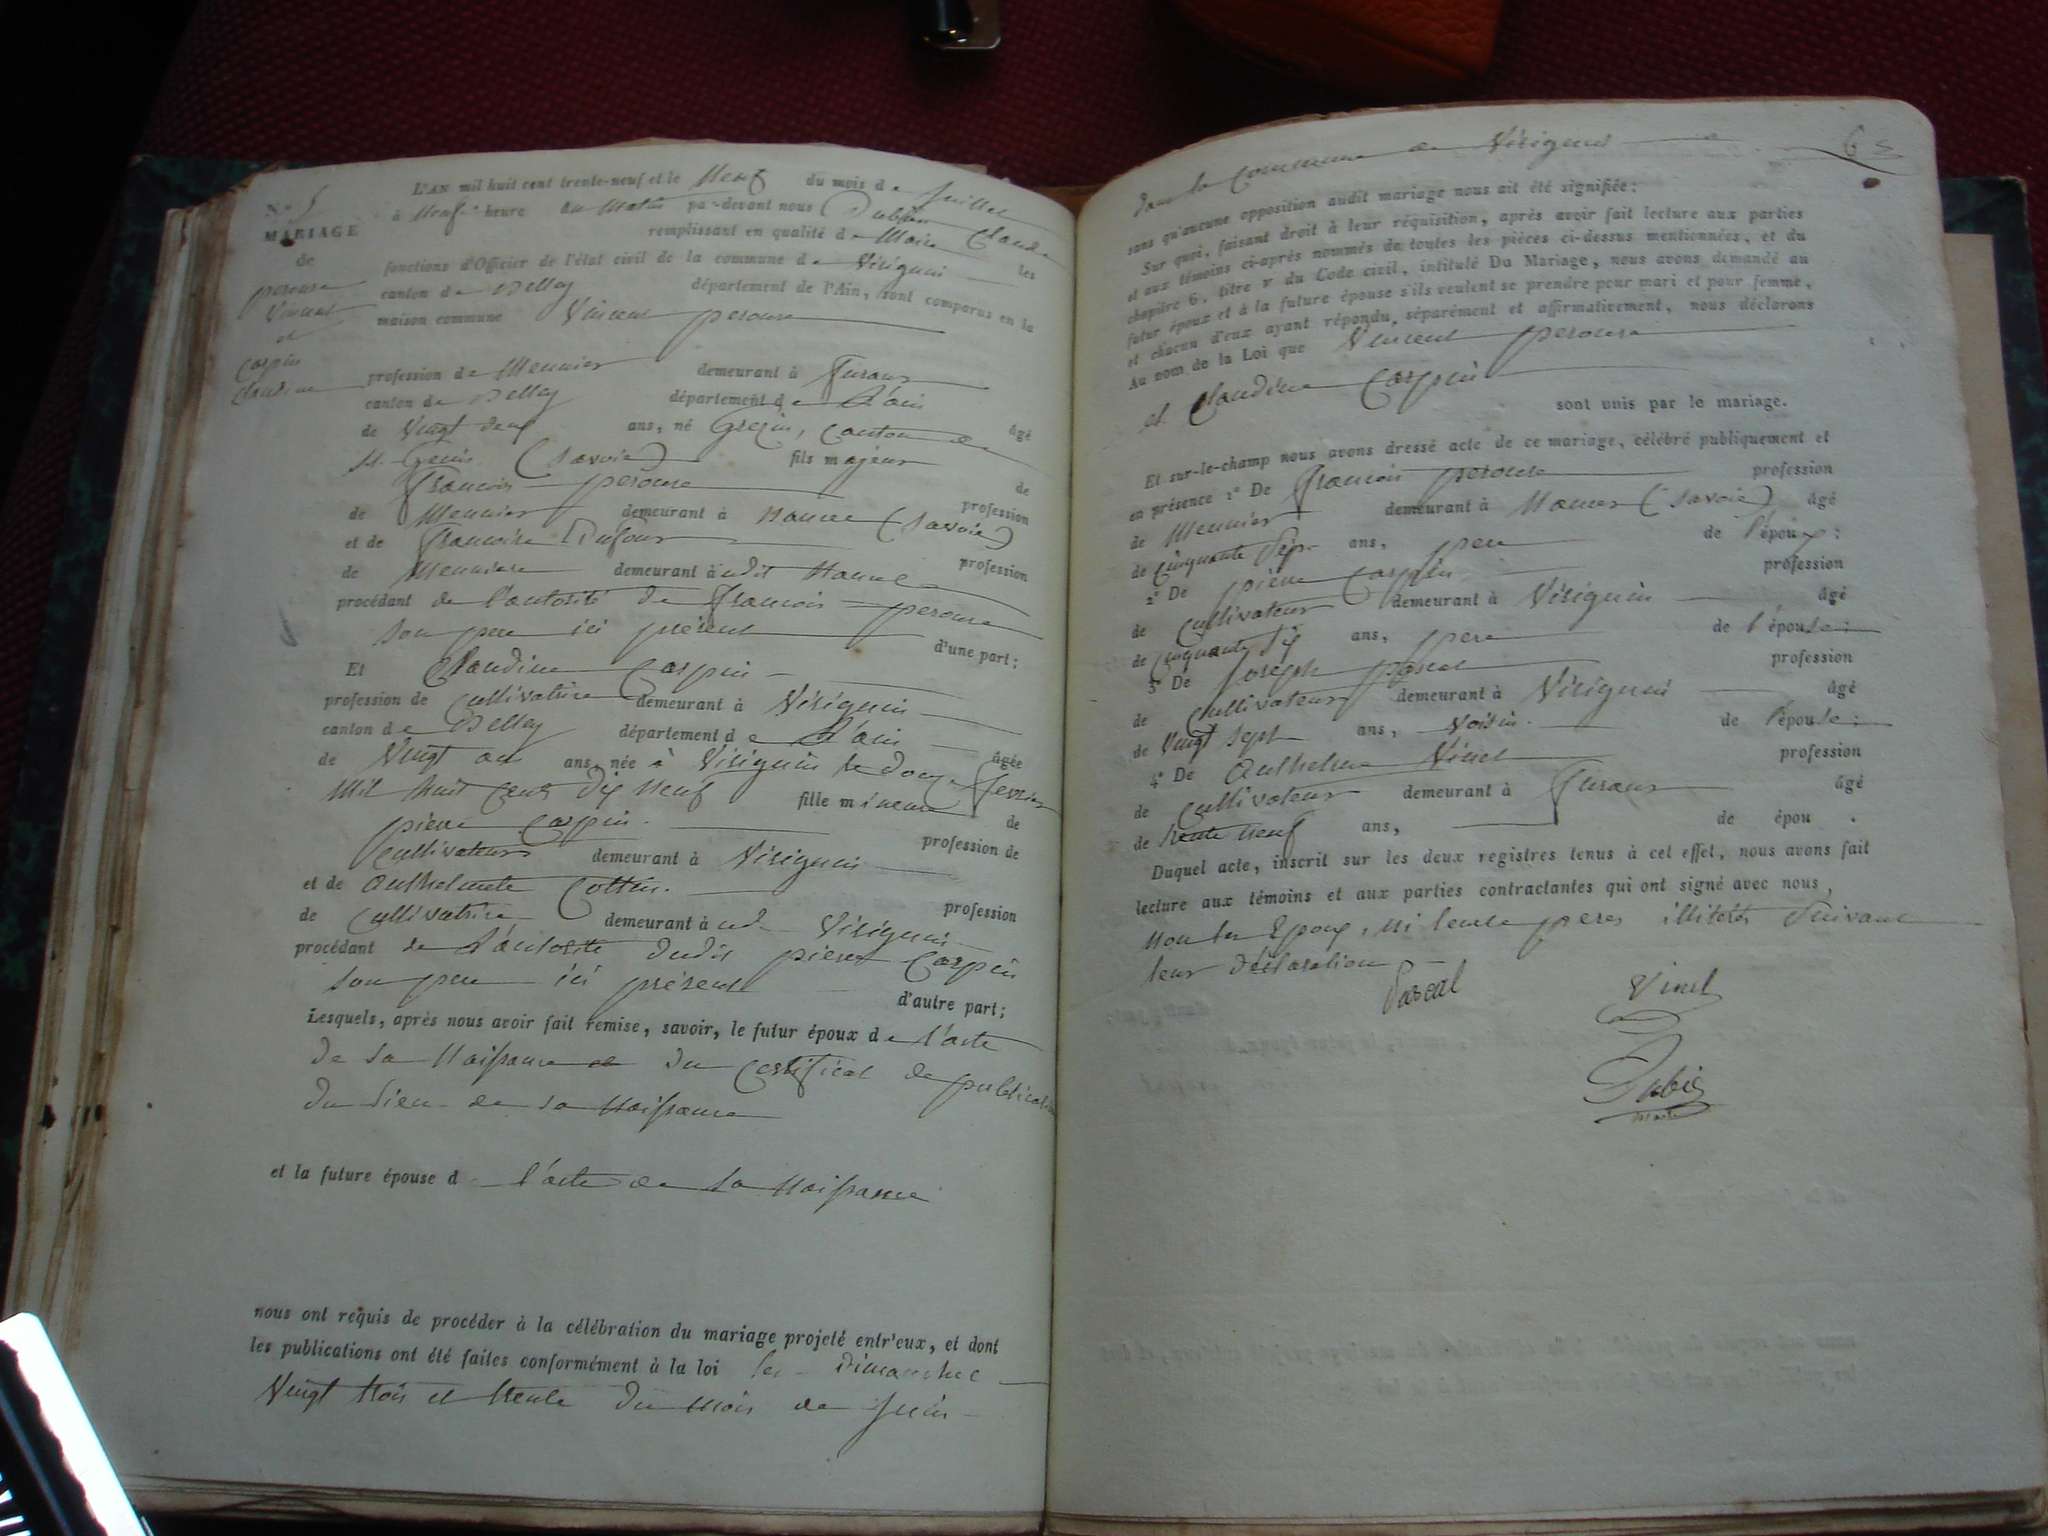 N.º 5
MARIAGE
de
perouse
Vincent
et
Carpin
Claudine
L'AN mil huit cent trente-neuf et le Neuf du mois de Juillet
à Neuf heure du Matin par-devant nous Claude
remplissant en qualité de Maire les
fonctions d'Officier de l'état civil de la commune de Virignin
canton de Belley département de l'Ain, sont comparus en la
maison commune Vincent perouse
profession de Meunier demeurant à
canton de Belley département de L'ain âgé
de Vingt deux ans, né Grezin, Canton de
St. Genis (Savoie) fils majeur de
francois perouse profession
de Meunier demeurant à (Savoie)
et de francoise Dufour profession
de Meuniere demeurant à udit
procédant de l'autorité de francois perouse
son pere ici présent d'une part;
Et Claudine Carpin
profession de Cultivatrice demeurant à Virignin
canton de Belley département de L'ain âgée
de Vingt ans, née à Virignin le douze fevrier
Mil huit Cent dix Neuf fille mineure de
pierre Carpin profession de
Cultivateur demeurant à Virignin
et de Anthelmete Cottin profession
de Cultivatrice demeurant à ud. Virignin
procédant de L'autorité dudit pierre Carpin
son pere ici présent d'autre part;
Lesquels, après nous avoir fait remise, savoir, le futur époux de l'acte
de sa Naissance et du Certificat de publication
du lieu de sa Naissance
et la future épouse d l'acte de sa Naissance
nous ont requis de procéder à la célébration du mariage projeté entr'eux, et dont
les publications ont été faites conformément à la loi les Dimanche
Vingt trois et trente du mois de Juin
dans la Commune de Virignin 63
sans qu'aucune opposition audit mariage nous ait été signifiée;
Sur quoi, faisant droit à leur réquisition, après avoir fait lecture aux parties
et aux témoins ci-après nommés de toutes les pièces ci-dessus mentionnées, et du
chapitre 6, titre v du Code civil, intitulé Du Mariage, nous avons demandé au
futur époux et à la future épouse s'ils veulent se prendre pour mari et pour femme,
et chacun d'eux ayant répondu, séparément et affirmativement, nous déclarons
Au nom de la Loi que Vincent perouse
et Claudine Carpin
sont unis par le mariage.
Et sur-le-champ nous avons dressé acte de ce mariage, célébré publiquement et
en présence 1º De francois perouse profession
de Meunier demeurant à (Savoie) âgé
de Cinquante Sept ans, pere de l'époux;
2º De pierre Carpin profession
de Cultivateur demeurant à Virignin âgé
de Cinquante Six ans, pere de l'épouse;
3º De Joseph pascal profession
de Cultivateur demeurant à Virignin âgé
de Vingt Sept ans, voisin de l'épouse;
4º De Anthelme Vinet profession
de Cultivateur demeurant à âgé
de trente Neuf ans, de épou .
Duquel acte, inscrit sur les deux registres tenus à cet effet, nous avons fait
lecture aux témoins et aux parties contractantes qui ont signé avec nous,
Non les Epoux, Ni leurs peres illitérés Suivant
leur déclaration
Pascal Vinet
Maire